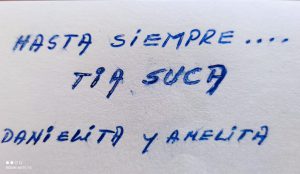 HASTA SIEMPRE....
TIA SUCA
DANIELITA Y AMELITA